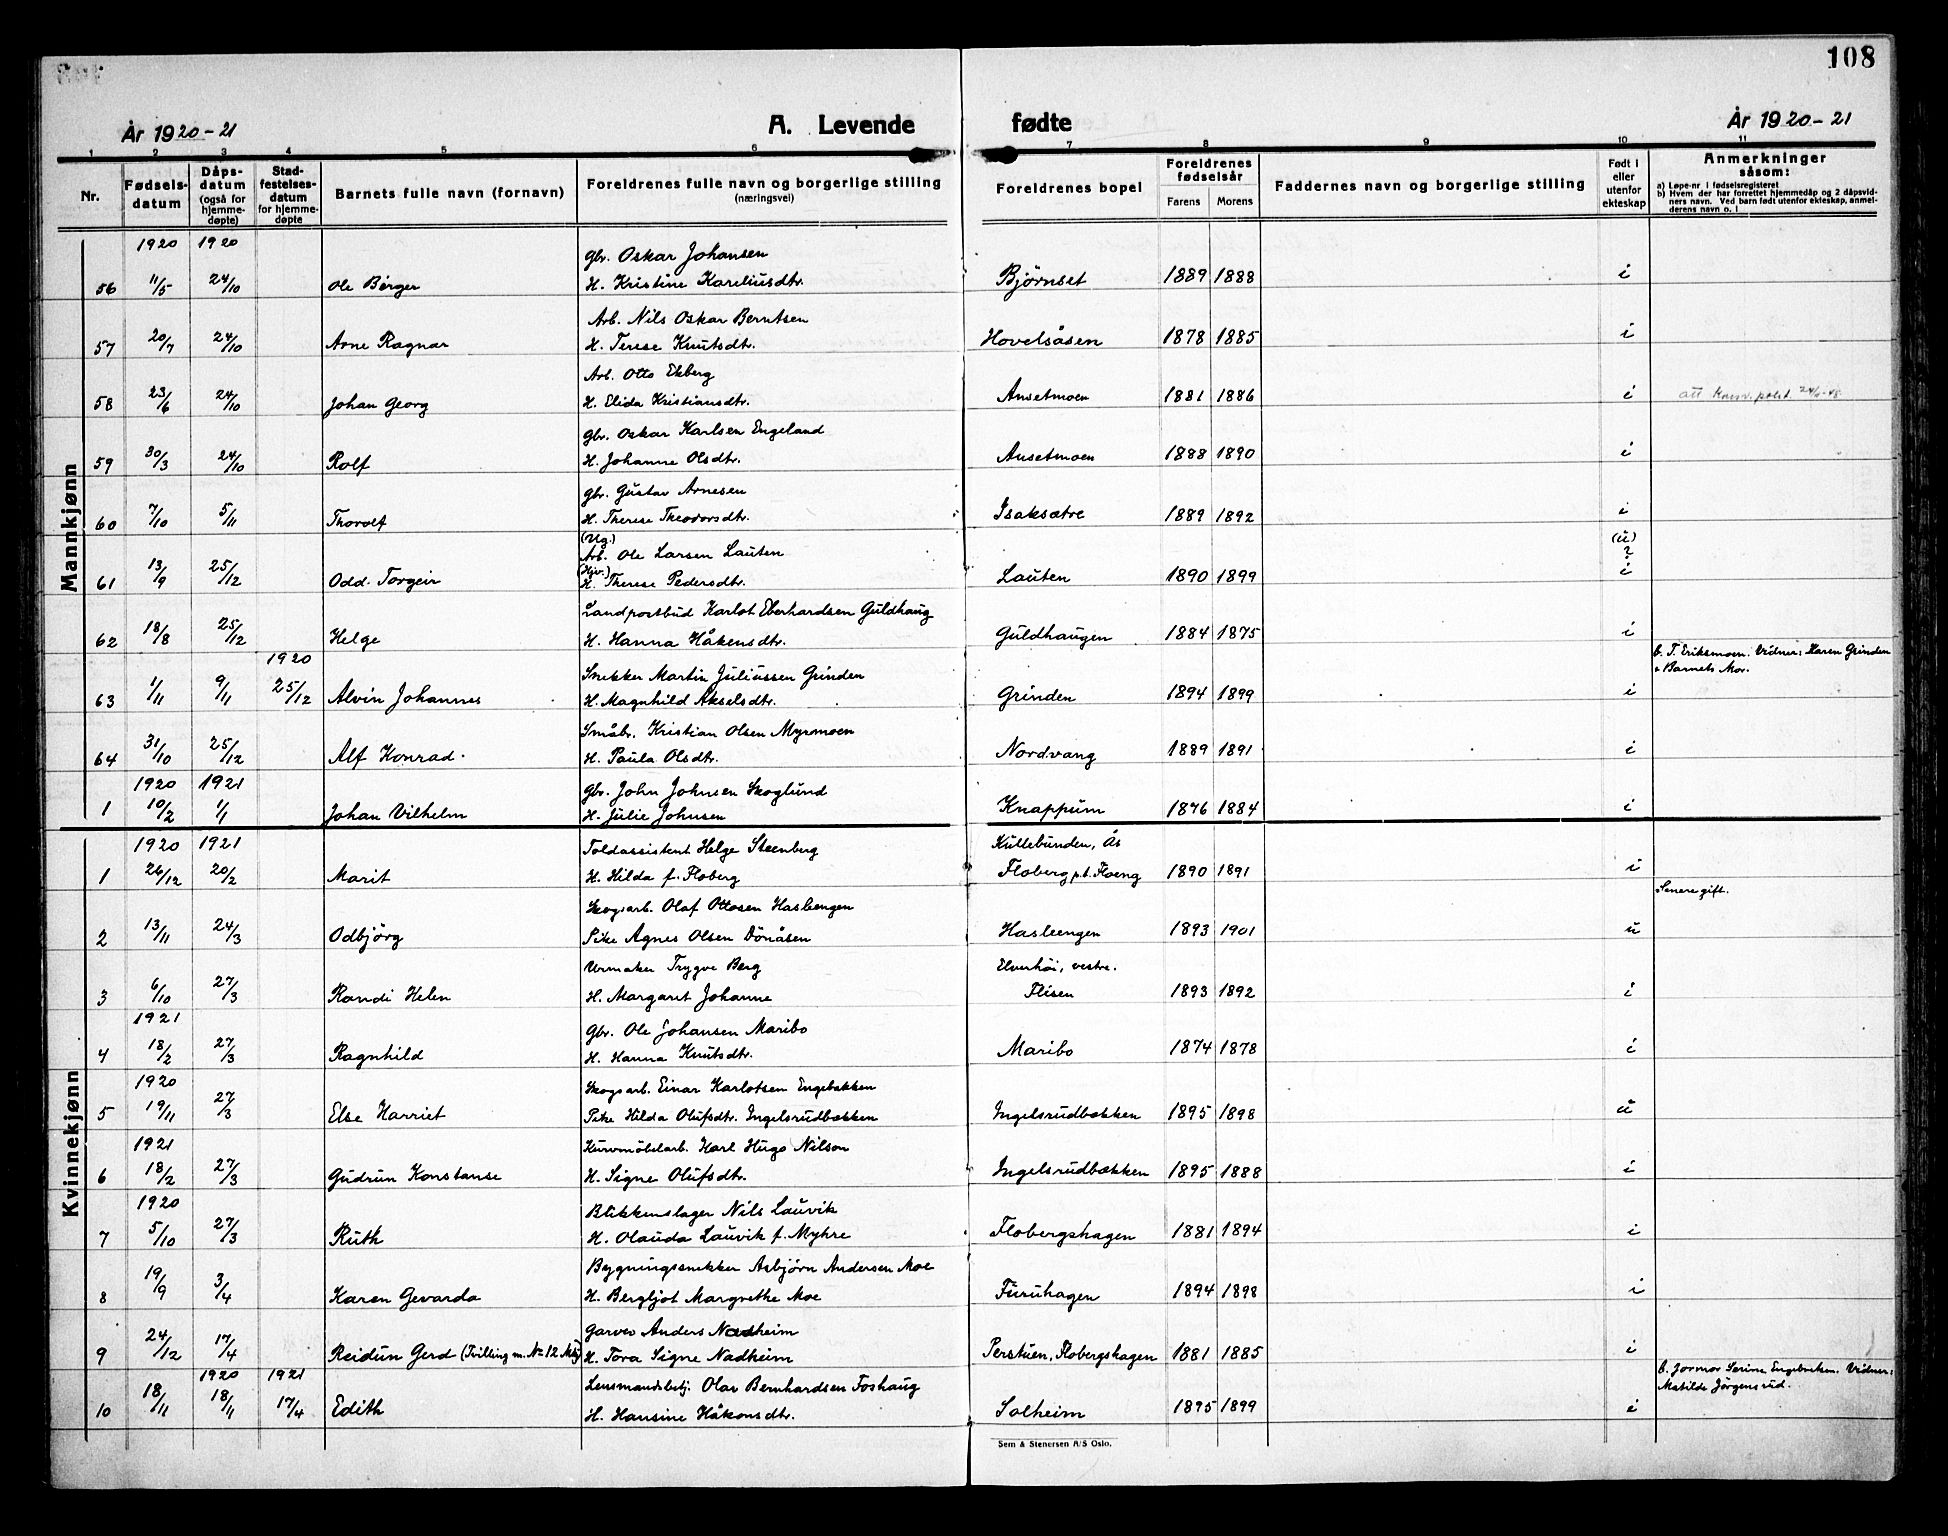 108
År 1920-21
A. Levende fødte
År 1920-21
1 2 3 4 5 6 7 8 9 10 11
Nr.
Fødsels-datum
Dåps-datum (også for hjemme-døpte)
Stad-festelses-datum for hjemme-døpte
Barnets fulle navn (fornavn)
Foreldrenes fulle navn og borgerlige stilling (næringsvei)
Foreldrenes bopel
Foreldrenes fødselsår
Farens Morens
Faddernes navn og borgerlige stilling
Født i eller utenfor ekteskap
Anmerkninger såsom:
a) Løpe-nr i fødselsregisteret
b) Hvem der har forrettet hjemmedåp og 2 dåpsvid-
ners navn. Ved barn født utenfor ekteskap, anmel-
derens navn o. l
Mannkjønn
1920 1920 Gbr. Oskar Johansen
56 11/5 24/10 Ole Birger H. Kristine Kareliusdtr. Bjørnset 1889 1888 i
Arb. Nils Oskar Berntsen
57 20/7 24/10 Arne Ragnar H. Terese Knutsdtr. Hovelsåsen 1878 1885 i
Arb. Otto Ekberg
58 23/6 24/10 Johan Georg H. Elida Kristiansdtr. Ansetmoen 1881 1886 i att
Gbr. Oskar Karlsen Engeland
59 30/3 24/10 Rolf H. Johanne Olsdtr. Ansetmoen 1888 1890 i
Gbr. Gustav Arnesen
60 7/10 5/11 Thorolf H. Therese Theodorsdtr. Isaksætre 1889 1892 i
(Ug.) (u)
Arb. Ole Larsen Lauten ?
(Hjv.)
61 13/9 25/12 Odd Torgeir H. Therese Pedersdtr. Lauten 1890 1899 i
Landpostbud Karlot Eberhardsen Guldhaug
62 18/8 25/12 Helge H. Hanna Håkensdtr. Guldhaugen 1884 1875 i
1920 Snekker Martin Juliussen Grinden b. T. Eriksmoen. Vidner: Karen Grinden
& Barnets Mor.
63 1/11 9/11 25/12 Alvin Johannes H. Magnhild Akselsdtr. Grinden 1894 1899 i
Småbr. Kristian Olsen Myrmoen
64 31/10 25/12 Alf Konrad. H. Paula Olsdtr. Nordvang 1889 1891 i
1920 1921 Gbr. John Johnsen Skoglund
1 10/2 1/1 Johan Vilhelm H. Julie Johnsen Knappum 1876 1884 i
Kvinnekjønn
1920 1921 Toldassistent Helge Steenberg Kullebunden, Ås
1 26/12 20/2 Marit H. Hilda f. Floberg Floberg p.t. Floeng 1890 1891 i
Skogsarb. Olaf Ottosen Hasleengen Senere gift.
2 13/11 24/3 Odbjörg Pike Agnes Olsen Dönåsen Hasleengen 1893 1901 u
Urmaker Trygve Berg Elverhöi, vestre.
3 6/10 27/3 Randi Helen H. Margaret Johanne Flisen 1893 1892 i
1921 Gbr. Ole Johansen Maribo
4 18/2 27/3 Ragnhild H. Hanna Knutsdtr. Maribo 1874 1878 i
1920 Skogsarb. Einar Karlotsen Engebakken
5 19/11 27/3 Else Harriet Pike Hilda Olufsdtr. Ingelsrudbækken Ingelsrudbækken 1895 1898 u
1921 Kurvmöbelarb. Karl Hugo Nilson
6 18/2 27/3 Gudrun Konstanse H. Signe Olufsdtr. Ingelsrudbækken 1895 1888 i
1920 Blikkenslager Nils Lauvik
7 5/10 27/3 Ruth H. Olauda Lauvik f. Myhre Flobergshagen 1881 1894 i
Bygningssnekker Asbjørn Andersen Moe
8 19/9 3/4 Karen Gevarda H. Bergljot Margrethe Moe Furuhagen 1894 1898 i
Garver Anders Nadheim
9 24/12 17/4 Reidun Gerd (Tvilling m. No 12 H. Tora Signe Nadheim Perstuen, Flobergshagen 1881 1885 i
1920 1921 Lensmandsbetj. Olav Bernhardsen Foshaug b. Jormor Serine Engebreksen. Vidner:
Matilde Jörgensrud.
10 18/11 18/11 17/4 Edith H. Hansine Håkonsdtr. Solheim 1895 1899 i
Sem & Stenersen A/S Oslo.